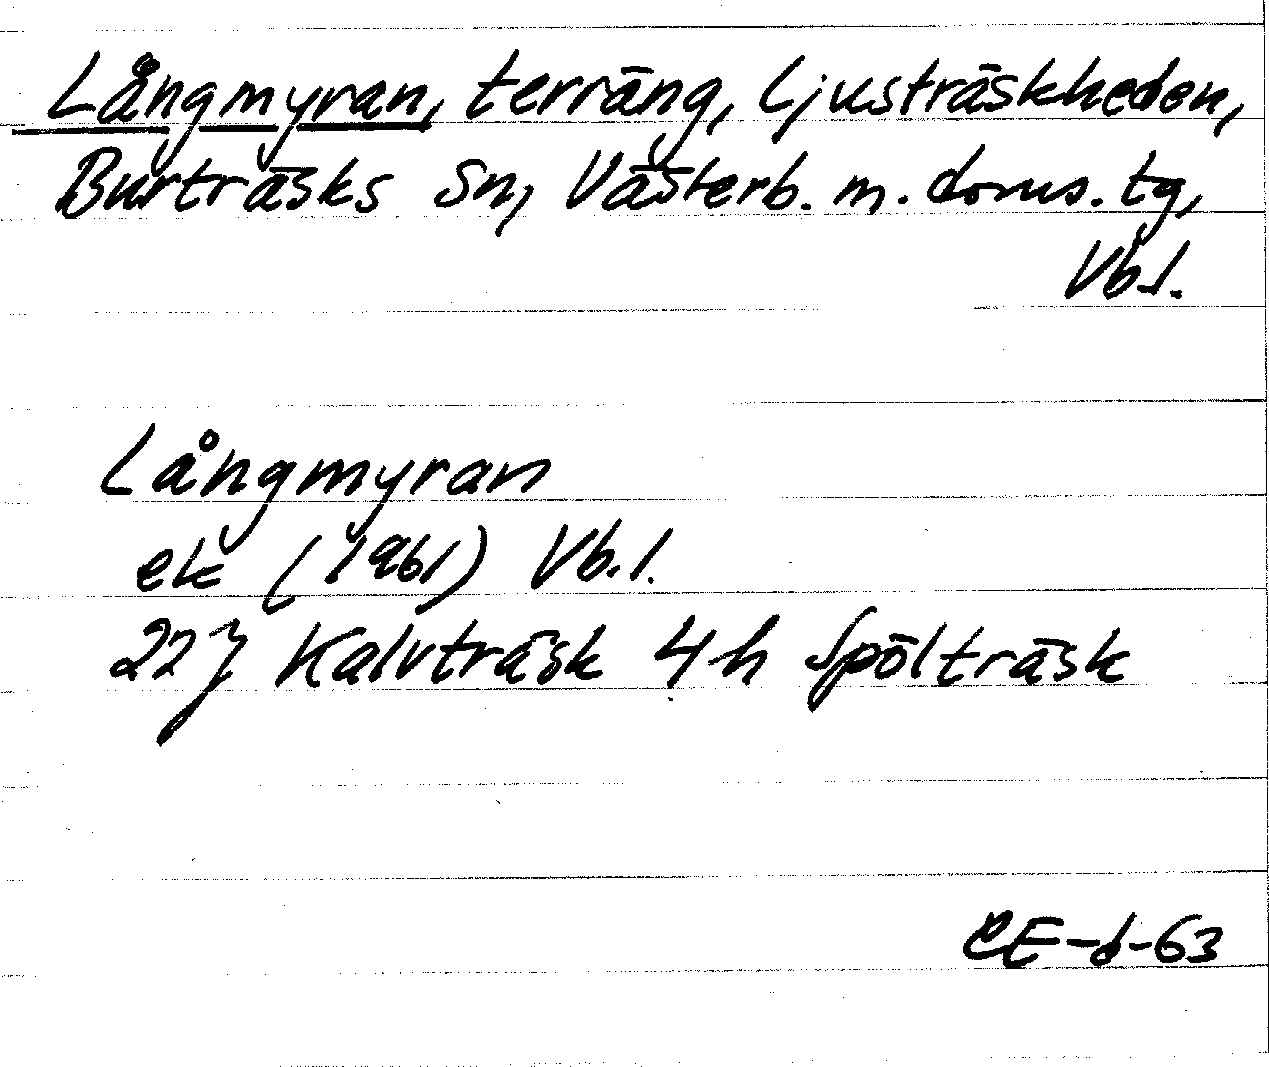 Långmyran, terräng, Ljusträskheden,
Burträsks sn, Västerb. m. doms. tg,
Vb.l.
Långmyran
ek (1961) Vb.l.
22J Kalvträsk 4h Spölträsk
CE-d-63